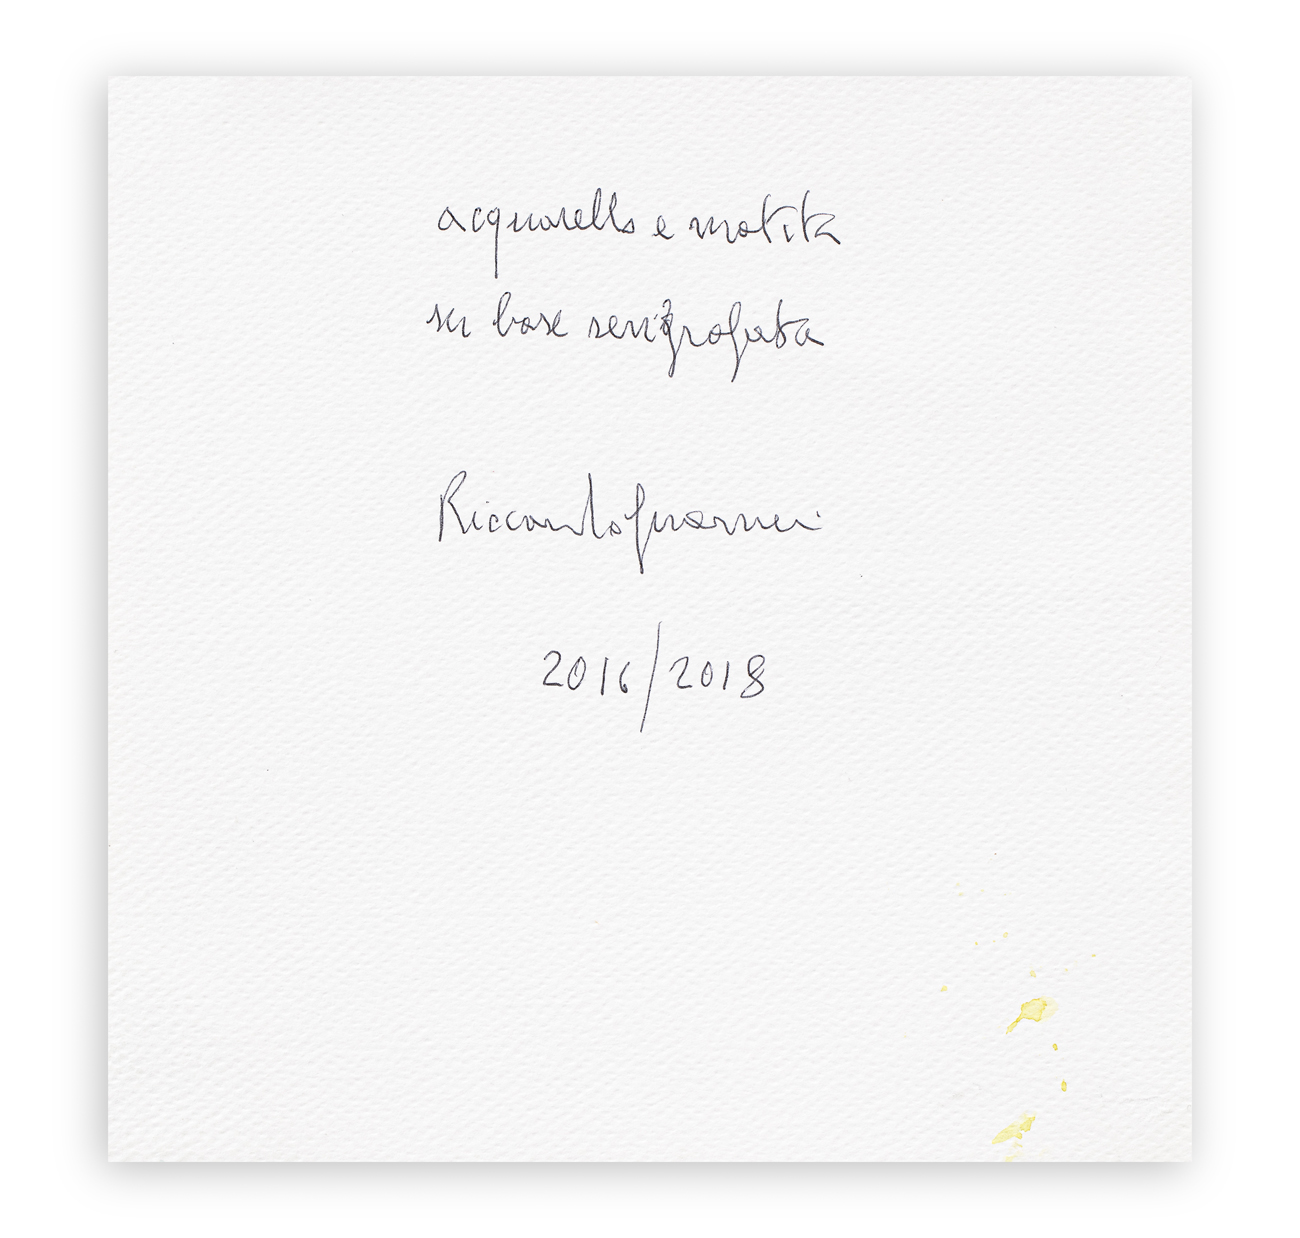 acquarello e matita
su base serigrafata
Riccardo Guarneri
2016/2018